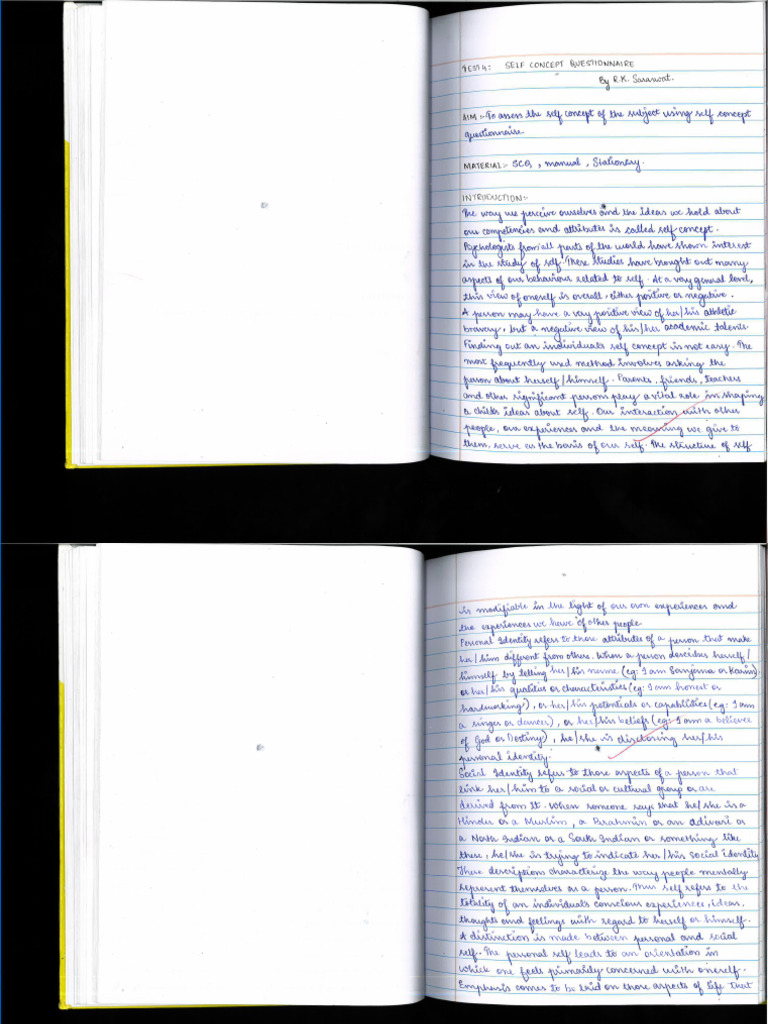 TEST 4:- SELF CONCEPT QUESTIONNAIRE
By R.K. Saraswat.
AIM:- To assess the self concept of the subject using self concept
questionnaire.
MATERIAL:- SCQ, manual, Stationery.
INTRODUCTION:-
The way we perceive ourselves and the ideas we hold about
our competencies and attributes is called self concept.
Psychologists from all parts of the world have shown interest
in the study of self. These studies have brought out many
aspects of our behaviour related to self. At a very general level,
this view of oneself is overall, either positive or negative.
A person may have a very positive view of her/his athletic
bravery, but a negative view of his/her academic talents.
Finding out an individual's self concept is not easy. The
most frequently used method involves asking the
person about herself/himself. Parents, friends, teachers
and other significant persons play a vital role in shaping
a child's ideas about self. Our interaction with other
people, our experiences and the meaning we give to
them, serve as the basis of our self. The structure of self
is modifiable in the light of our own experiences and
the experiences we have of other people.
Personal Identity refers to those attributes of a person that make
her/him different from others. When a person describes herself/
himself by telling her/his name (eg: I am Sanjana or Karim)
or her/his qualities or characteristics (eg: I am honest or
hardworking), or her/his potentials or capabilities (eg: I am
a singer or dancer), or her/his beliefs (eg: I am a believer
of God or Destiny), he/she is disclosing her/his
personal identity.
Social Identity refers to those aspects of a person that
link her/him to a social or cultural group or are
derived from it. When someone says that he/she is a
Hindu or a Muslim, a Brahmin or an adivasi or
a North Indian or a South Indian or something like
these, he/she is trying to indicate her/his social identity
These descriptions characterize the way people mentally
represent themselves as a person. Thus self refers to the
totality of an individual's conscious experiences, ideas,
thoughts and feelings with regard to herself or himself.
A distinction is made between personal and social
self. The personal self leads to an orientation in
which one feels primarily concerned with oneself.
Emphasis comes to be laid on those aspects of life that